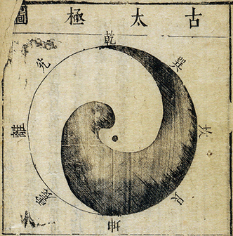 古太極圖
乾
兌
巽
離
坎
艮